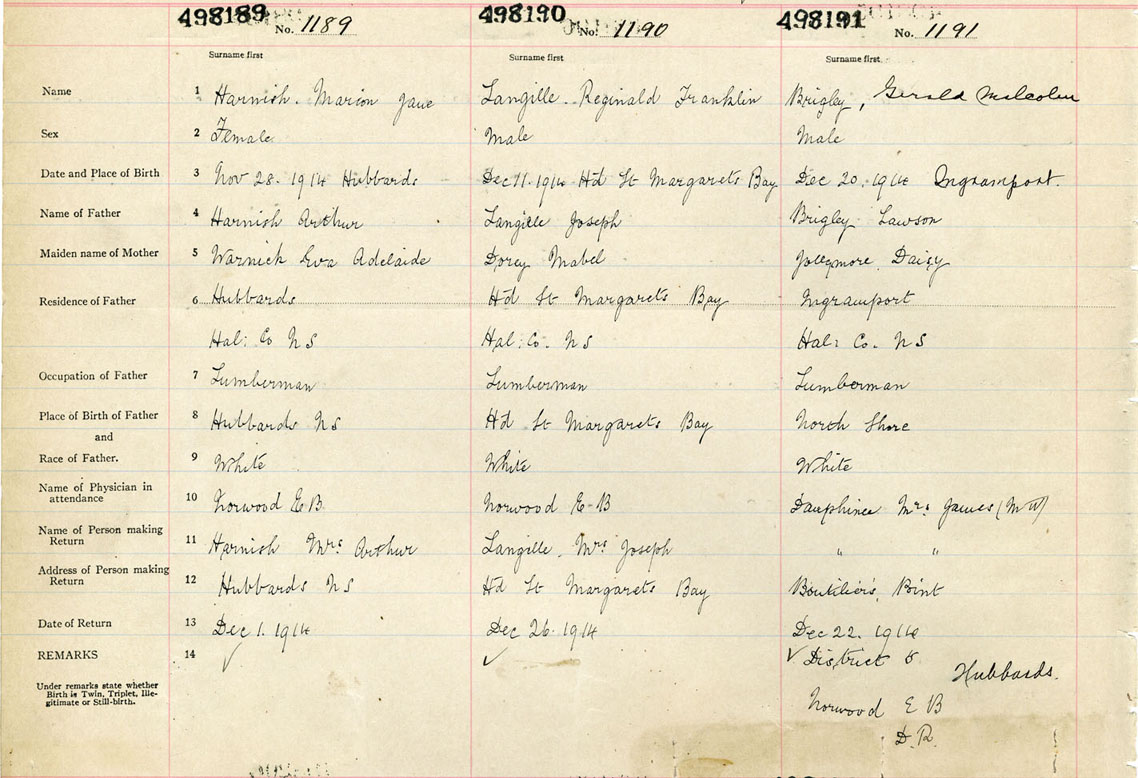 498189 No. 1189 498190 No. 1190 498191 No. 1191
Surname first Surname first Surname first
Name 1 Harnish. Marion Jane Langille. Reginald Franklin Brigley, Gerald Malcolm
Sex 2 Female Male Male
Date and Place of Birth 3 Nov 28. 1914 Hubbards Dec 11. 1914 Hd St Margarets Bay Dec 20. 1914 Ingramport.
Name of Father 4 Harnish Arthur Langille Joseph Brigley Lawson
Maiden name of Mother 5 Warnick Eva Adelaide Dorey Mabel Jollymore Daisy
Residence of Father 6 Hubbards Hd St Margarets Bay Ingramport
Hal: Co NS Hal: Co. NS Hal: Co. NS
Occupation of Father 7 Lumberman Lumberman Lumberman
Place of Birth of Father 8 Hubbards NS Hd St Margarets Bay North Shore
and
Race of Father. 9 White White White
Name of Physician in
attendance 10 Norwood E B. Norwood E-B Dauphinee Mrs James (M W)
Name of Person making
Return 11 Harnish Mrs Arthur Langille. Mrs Joseph " "
Address of Person making
Return 12 Hubbards NS Hd St Margarets Bay Boutilier's Point
Date of Return 13 Dec 1. 1914 Dec 26. 1914 Dec 22. 1914
REMARKS 14 ✓ ✓ ✓ District 8
Hubbards.
Under remarks state whether
Birth is Twin, Triplet, Ille-
gitimate or Still-birth.
Norwood E B
D.R.